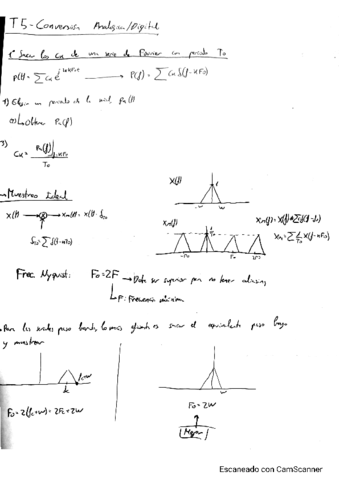 T5 - Conversión Analógica/Digital
1º Sacar los Cn de una serie de Fourier con periodo To
P(t) = ∑ Cn e^j2πnFot → P(f) = ∑ Cn δ(f-nFo)
1) Elegir un periodo de la señal, Pa(t)
2) Obtener Pa(f)
3)
Cn = Pa(f)|f=nFo / To
Muestreo Ideal
X(f)
-w w
x(t) → ⊗ → xm(t) = x(t)·
∑ δ(t-nTo)
Xm(f)
Frec. Nyquist: Fo = 2F → Debe ser superior para no tener aliasing
F: Frecuencia máxima
Para las señales paso banda, lo más eficiente es sacar el equivalente paso bajo
y muestrear
fc+w
fc
-w w
Fo = 2(fc+w) = 2fc+2w
Fo = 2w
Mejor
Escaneado con CamScanner